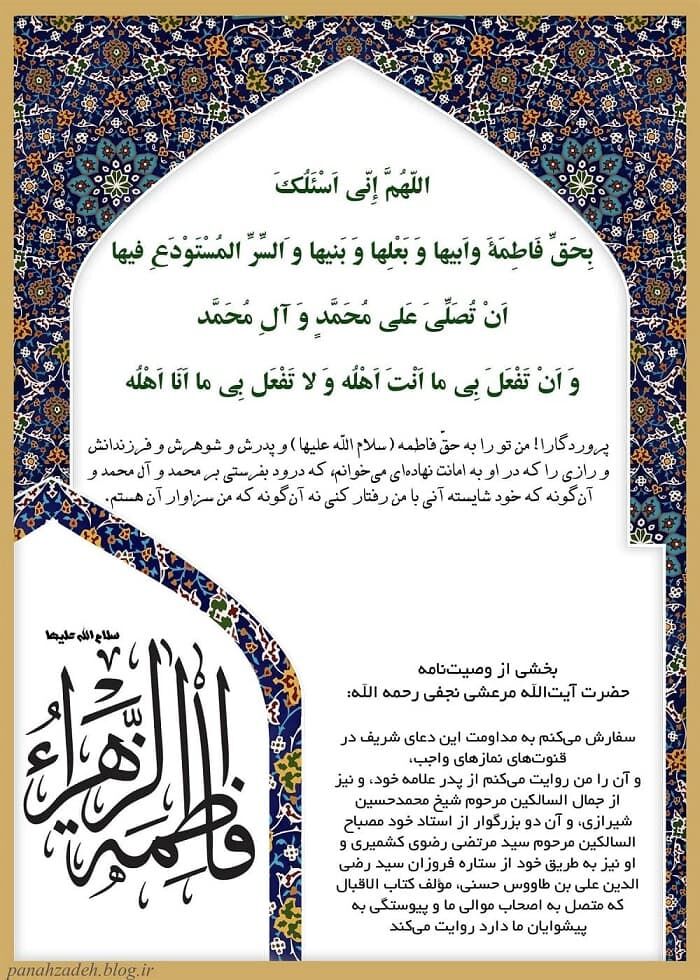 اللّهُمَّ إِنّی اَسْئَلُکَ
بِحَقِّ فَاطِمَةَ وابیها وَ بَعْلِها وَ بَنیها و َالسِّرِّ المُسْتَوْدَعِ فیها
اَنْ تُصَلِّیَ عَلی مُحَمَّدٍ وَ آلِ مُحَمَّد
وَ اَنْ تَفْعَلَ بِی ما اَنْتَ اَهْلُه وَ لا تَفْعَل بِی ما اَنَا اَهْلُه
پروردگارا! من تو را به حقّ فاطمه (سلام الله علیها) و پدرش و شوهرش و فرزندانش
و رازی را که در او به امانت نهاده‌ای می‌خوانم، که درود بفرستی بر محمد و آل محمد و
آن‌گونه که خود شایسته آنی با من رفتار کنی نه آن‌گونه که من سزاوار آن هستم.
سلام الله علیها
فاطمه الزهراء
بخشی از وصیت‌نامه
حضرت آیت‌الله مرعشی نجفی رحمه الله:
سفارش می‌کنم به مداومت این دعای شریف در
قنوت‌های نمازهای واجب،
و آن را من روایت می‌کنم از پدر علامه خود، و نیز
از جمال السالکین مرحوم شیخ محمدحسین
شیرازی، و آن دو بزرگوار از استاد خود مصباح
السالکین مرحوم سید مرتضی رضوی کشمیری و
او نیز به طریق خود از ستاره فروزان سید رضی
الدین علی بن طاووس حسنی، مؤلف کتاب الاقبال
که متصل به اصحاب موالی ما و پیوستگی به
پیشوایان ما دارد روایت می‌کند
panahzadeh.blog.ir